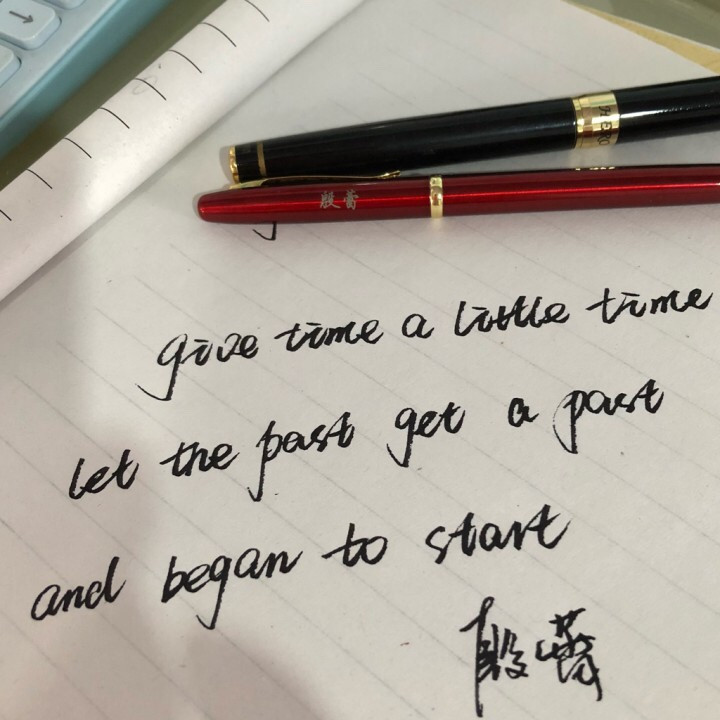 HERO
殷蕾
give time a little time
let the past get a past
and began to start
殷蕾